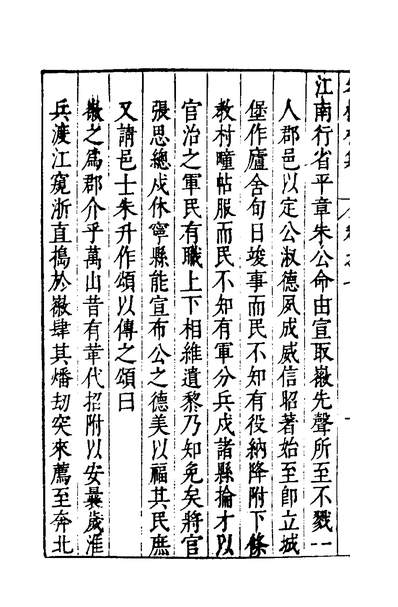 江南行省平章朱公命由宣取徽先聲所至不戮一
人郡邑以定公淑德夙成威信昭著始至即立城
堡作廬舍旬日竣事而民不知有役納降附下條
教村疃帖服而民不知有軍分兵戍諸縣掄才以
官治之軍民有職上下相維遺黎乃知免矣將官
張思總戍休寧縣能宣布公之德美以福其民庶
又請邑士朱升作頌以傳之頌曰
徽之為郡介乎萬山昔有革代招附以安曩歲淮
兵渡江窺浙直搗於徽肆其燔劫突來薦至奔北